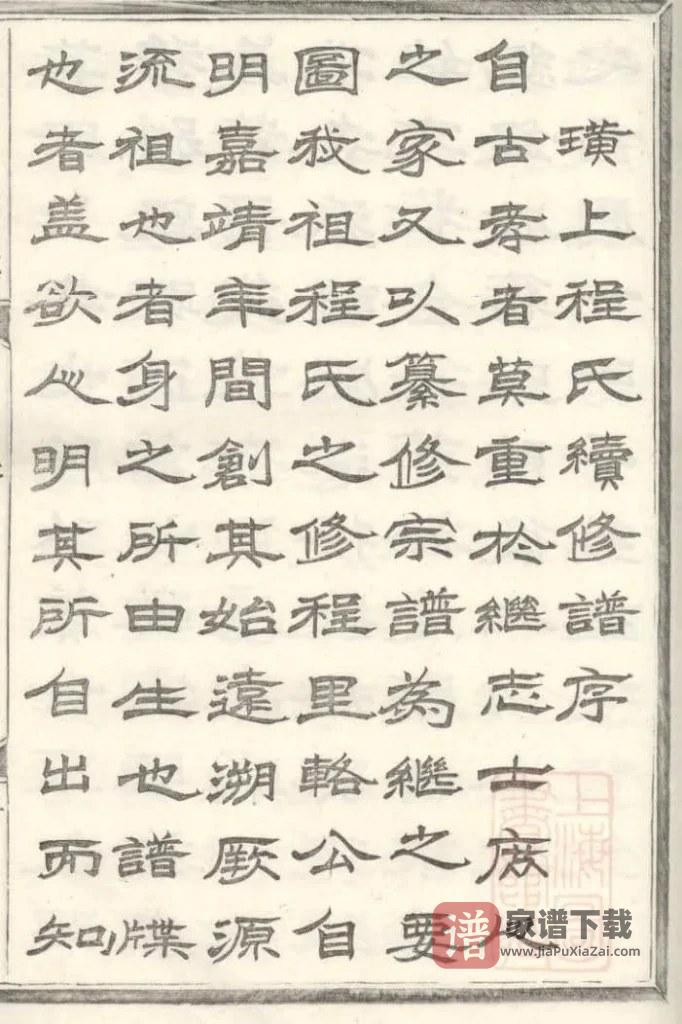 璜上程氏續修譜序
自古孝者莫重於繼志士庶人
之家又以纂修宗譜為繼之要
圖我祖程氏之修程里輅公自
明嘉靖年間創其始遠溯厥源
流祖也者身之所由生也譜牒
也者盖欲心明其所自出而知
谱 家谱下载
www.jiaPuXiaZai.com